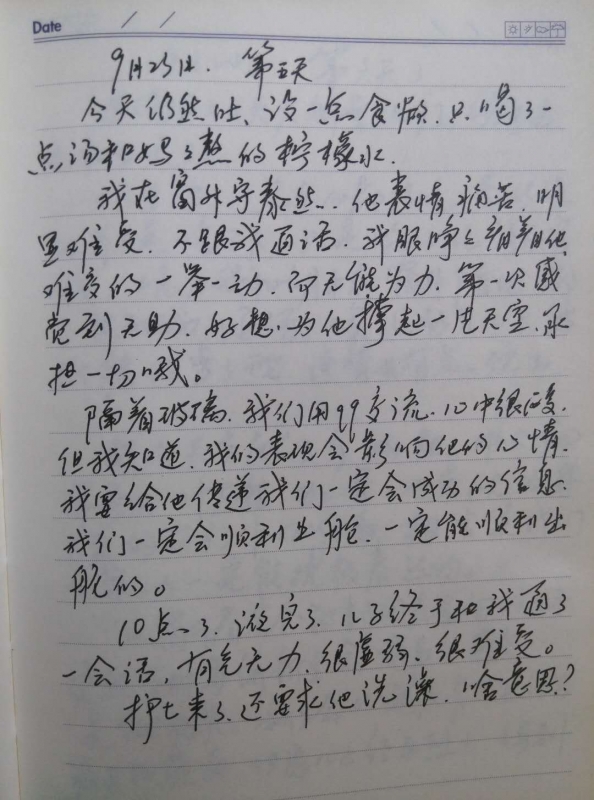 Date / /
9月25日. 第五天
今天仍然吐、没一点食欲. 只喝了一
点汤和妈妈熬的柠檬水.
我在窗外守泰然. 他表情痛苦. 明
显难受. 不跟我通话. 我眼睁睁看着他
难受的一举一动. 而无能为力. 第一次感
觉到无助. 好想为他撑起一片天空. 承
担一切哦。
隔着玻璃. 我们用qq交流. 心中很酸.
但我知道. 我的表现会影响他的心情.
我要给他传递我们一定会成功的信息.
我们一定会顺利出舱. 一定能顺利出
舱的。
10点了. 液完了. 儿子终于和我通了
一会话, 有气无力. 很虚弱. 很难受。
护士来了. 还要求他洗澡. 啥意思?